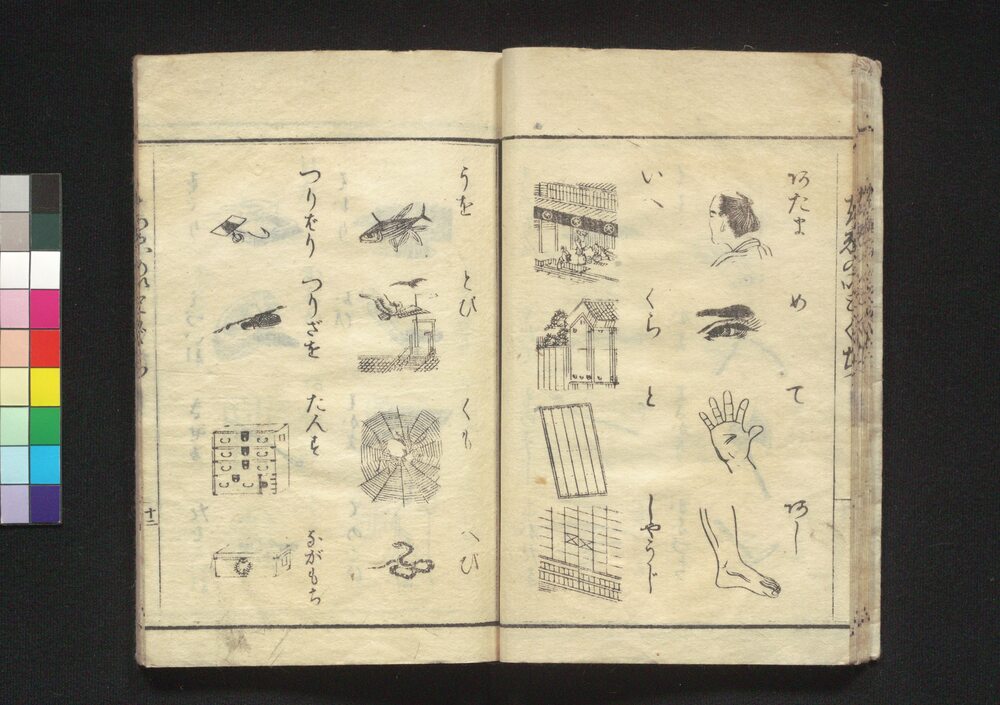 あたま
め
て
あし
いへ
くら
と
しやうじ
うを
とび
くも
へび
つりばり
つりざを
たんす
ながもち
十二